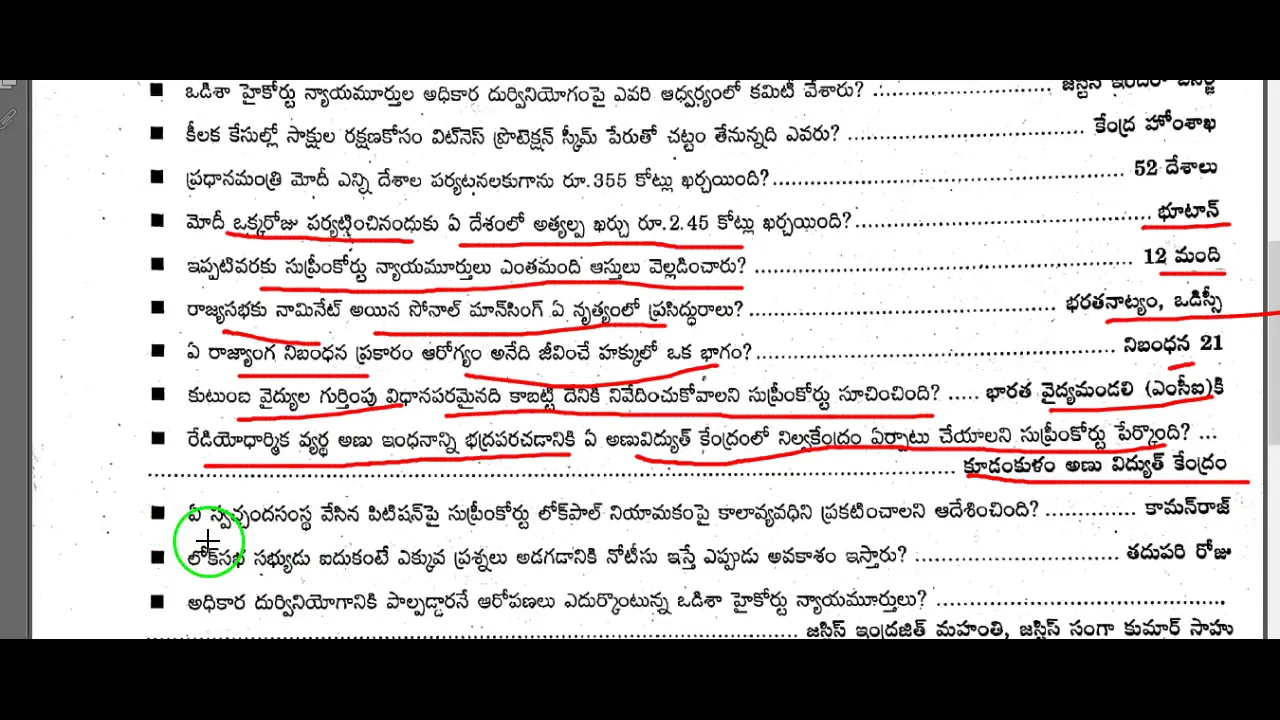 ఒడిశా హైకోర్టు న్యాయమూర్తుల అధికార దుర్వినియోగంపై ఎవరి ఆధ్వర్యంలో కమిటీ వేశారు? ................................ జస్టిస్ ఇందిరా బెనర్జీ
కీలక కేసుల్లో సాక్షుల రక్షణకోసం విట్‌నెస్ ప్రొటెక్షన్ స్కీమ్ పేరుతో చట్టం తేనున్నది ఎవరు? ................................ కేంద్ర హోంశాఖ
ప్రధానమంత్రి మోదీ ఎన్ని దేశాల పర్యటనలకుగాను రూ.355 కోట్లు ఖర్చయింది?................................ 52 దేశాలు
మోదీ ఒక్కరోజు పర్యట్టించినందుకు ఏ దేశంలో అత్యల్ప ఖర్చు రూ.2.45 కోట్లు ఖర్చయింది?................................ భూటాన్
ఇప్పటివరకు సుప్రీంకోర్టు న్యాయమూర్తులు ఎంతమంది ఆస్తులు వెల్లడించారు? ................................ 12 మంది
రాజ్యసభకు నామినేట్ అయిన సోనాల్ మాన్‌సింగ్ ఏ నృత్యంలో ప్రసిద్ధురాలు? ................................ భరతనాట్యం, ఒడిస్సీ
ఏ రాజ్యాంగ నిబంధన ప్రకారం ఆరోగ్యం అనేది జీవించే హక్కులో ఒక భాగం?................................ నిబంధన 21
కుటుంబ వైద్యుల గుర్తింపు విధానపరమైనది కాబట్టి దేనికి నివేదించుకోవాలని సుప్రీంకోర్టు సూచించింది? ..... భారత వైద్యమండలి (ఎంసీఐ)కి
రేడియోధార్మిక వ్యర్థ అణు ఇంధనాన్ని భద్రపరచడానికి ఏ అణువిద్యుత్ కేంద్రంలో నిల్వకేంద్రం ఏర్పాటు చేయాలని సుప్రీంకోర్టు పేర్కొంది? ...
................................ కూడంకుళం అణు విద్యుత్ కేంద్రం
ఏ స్వచ్ఛందసంస్థ వేసిన పిటిషన్‌పై సుప్రీంకోర్టు లోక్‌పాల్ నియామకంపై కాలావ్యవధిని ప్రకటించాలని ఆదేశించింది? ............... కామన్‌రాజ్
లోక్‌సభ సభ్యుడు ఐదుకంటే ఎక్కువ ప్రశ్నలు అడగడానికి నోటీసు ఇస్తే ఎప్పుడు అవకాశం ఇస్తారు? ................................ తదుపరి రోజు
అధికార దుర్వినియోగానికి పాల్పడ్డారనే ఆరోపణలు ఎదుర్కొంటున్న ఒడిశా హైకోర్టు న్యాయమూర్తులు? ................................
................................ జస్టిస్ ఇంద్రజిత్ మహంతి, జస్టిస్ సంగా కుమార్ సాహు